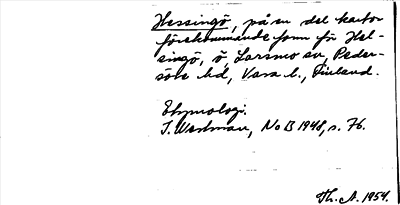 Hessingö, på en del kartor
förekommande form för Hel-
singö, ö, Larsmo sn, Peder-
söre hd, Vasa l., Finland.
Etymologi.
T. Westman, No B 1948, s. 76.
Th. A. 1954.